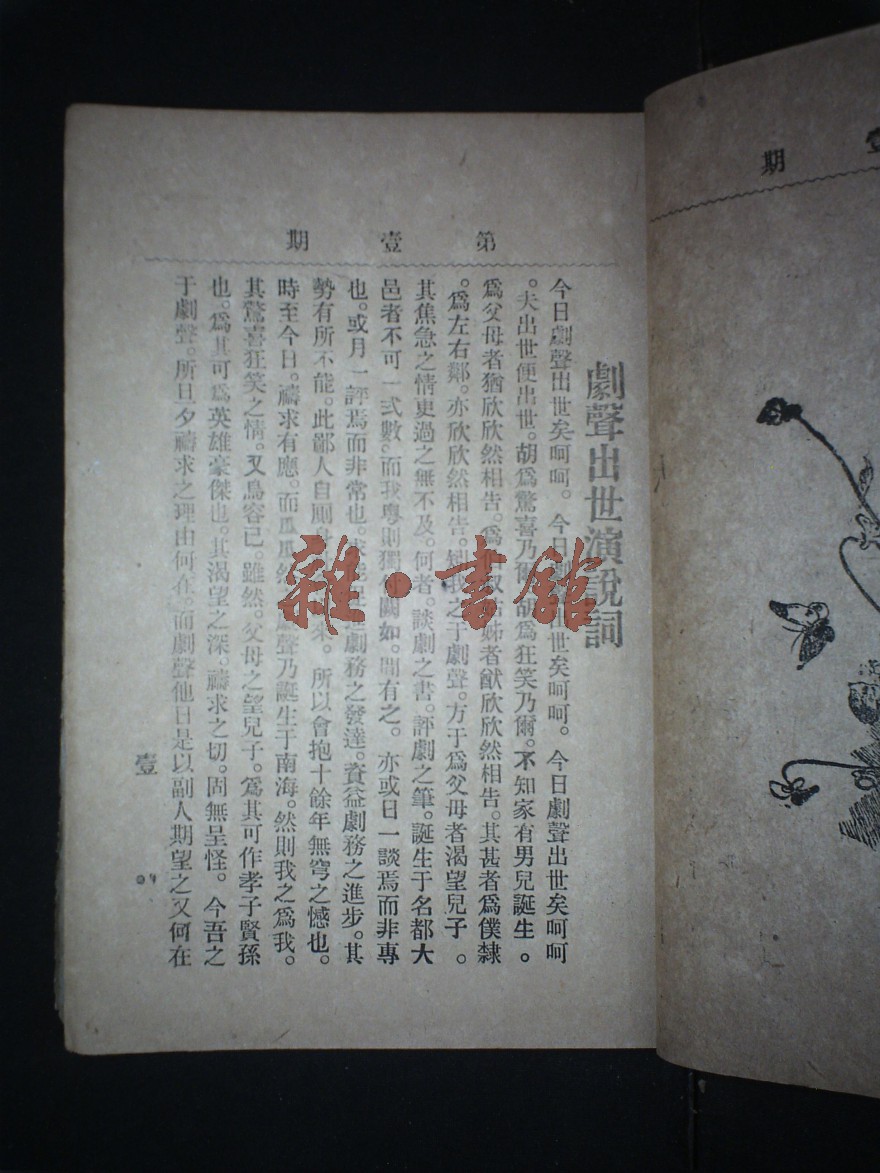 第壹期
劇聲出世演說詞
今日劇聲出世矣呵呵。今日劇聲出世矣呵呵。今日劇聲出世矣呵呵
。夫出世便出世。胡爲驚喜乃爾。胡爲狂笑乃爾。不知家有男兒誕生。
爲父母者猶欣欣然相告。爲姊者猷欣欣然相告。其甚者爲僕隸
。爲左右鄰。亦欣欣然相告。我之于劇聲。方于爲父母者渴望兒子。
其焦急之情更過之無不及。何者。談劇之書。評劇之筆。誕生于名都大
邑者不可一弍數。而我粵則獨如。間有之。亦或日一談焉而非專
也。或月一評焉而非常也。劇務之發達。資益劇務之進步。其
勢有所不能。此鄙人自。所以會抱十餘年無穹之憾也。
時至今日。禱求有應。而瓜瓜然聲乃誕生于南海。然則我之爲我。
其驚喜狂笑之情。又烏容已。雖然。父母之望兒子。爲其可作孝子賢孫
也。爲其可爲英雄豪傑也。其渴望之深。禱求之切。固無呈怪。今吾之
于劇聲。所日夕禱求之理由何在。而劇聲他日是以副人期望之又何在
壹
壹期
雜·書館